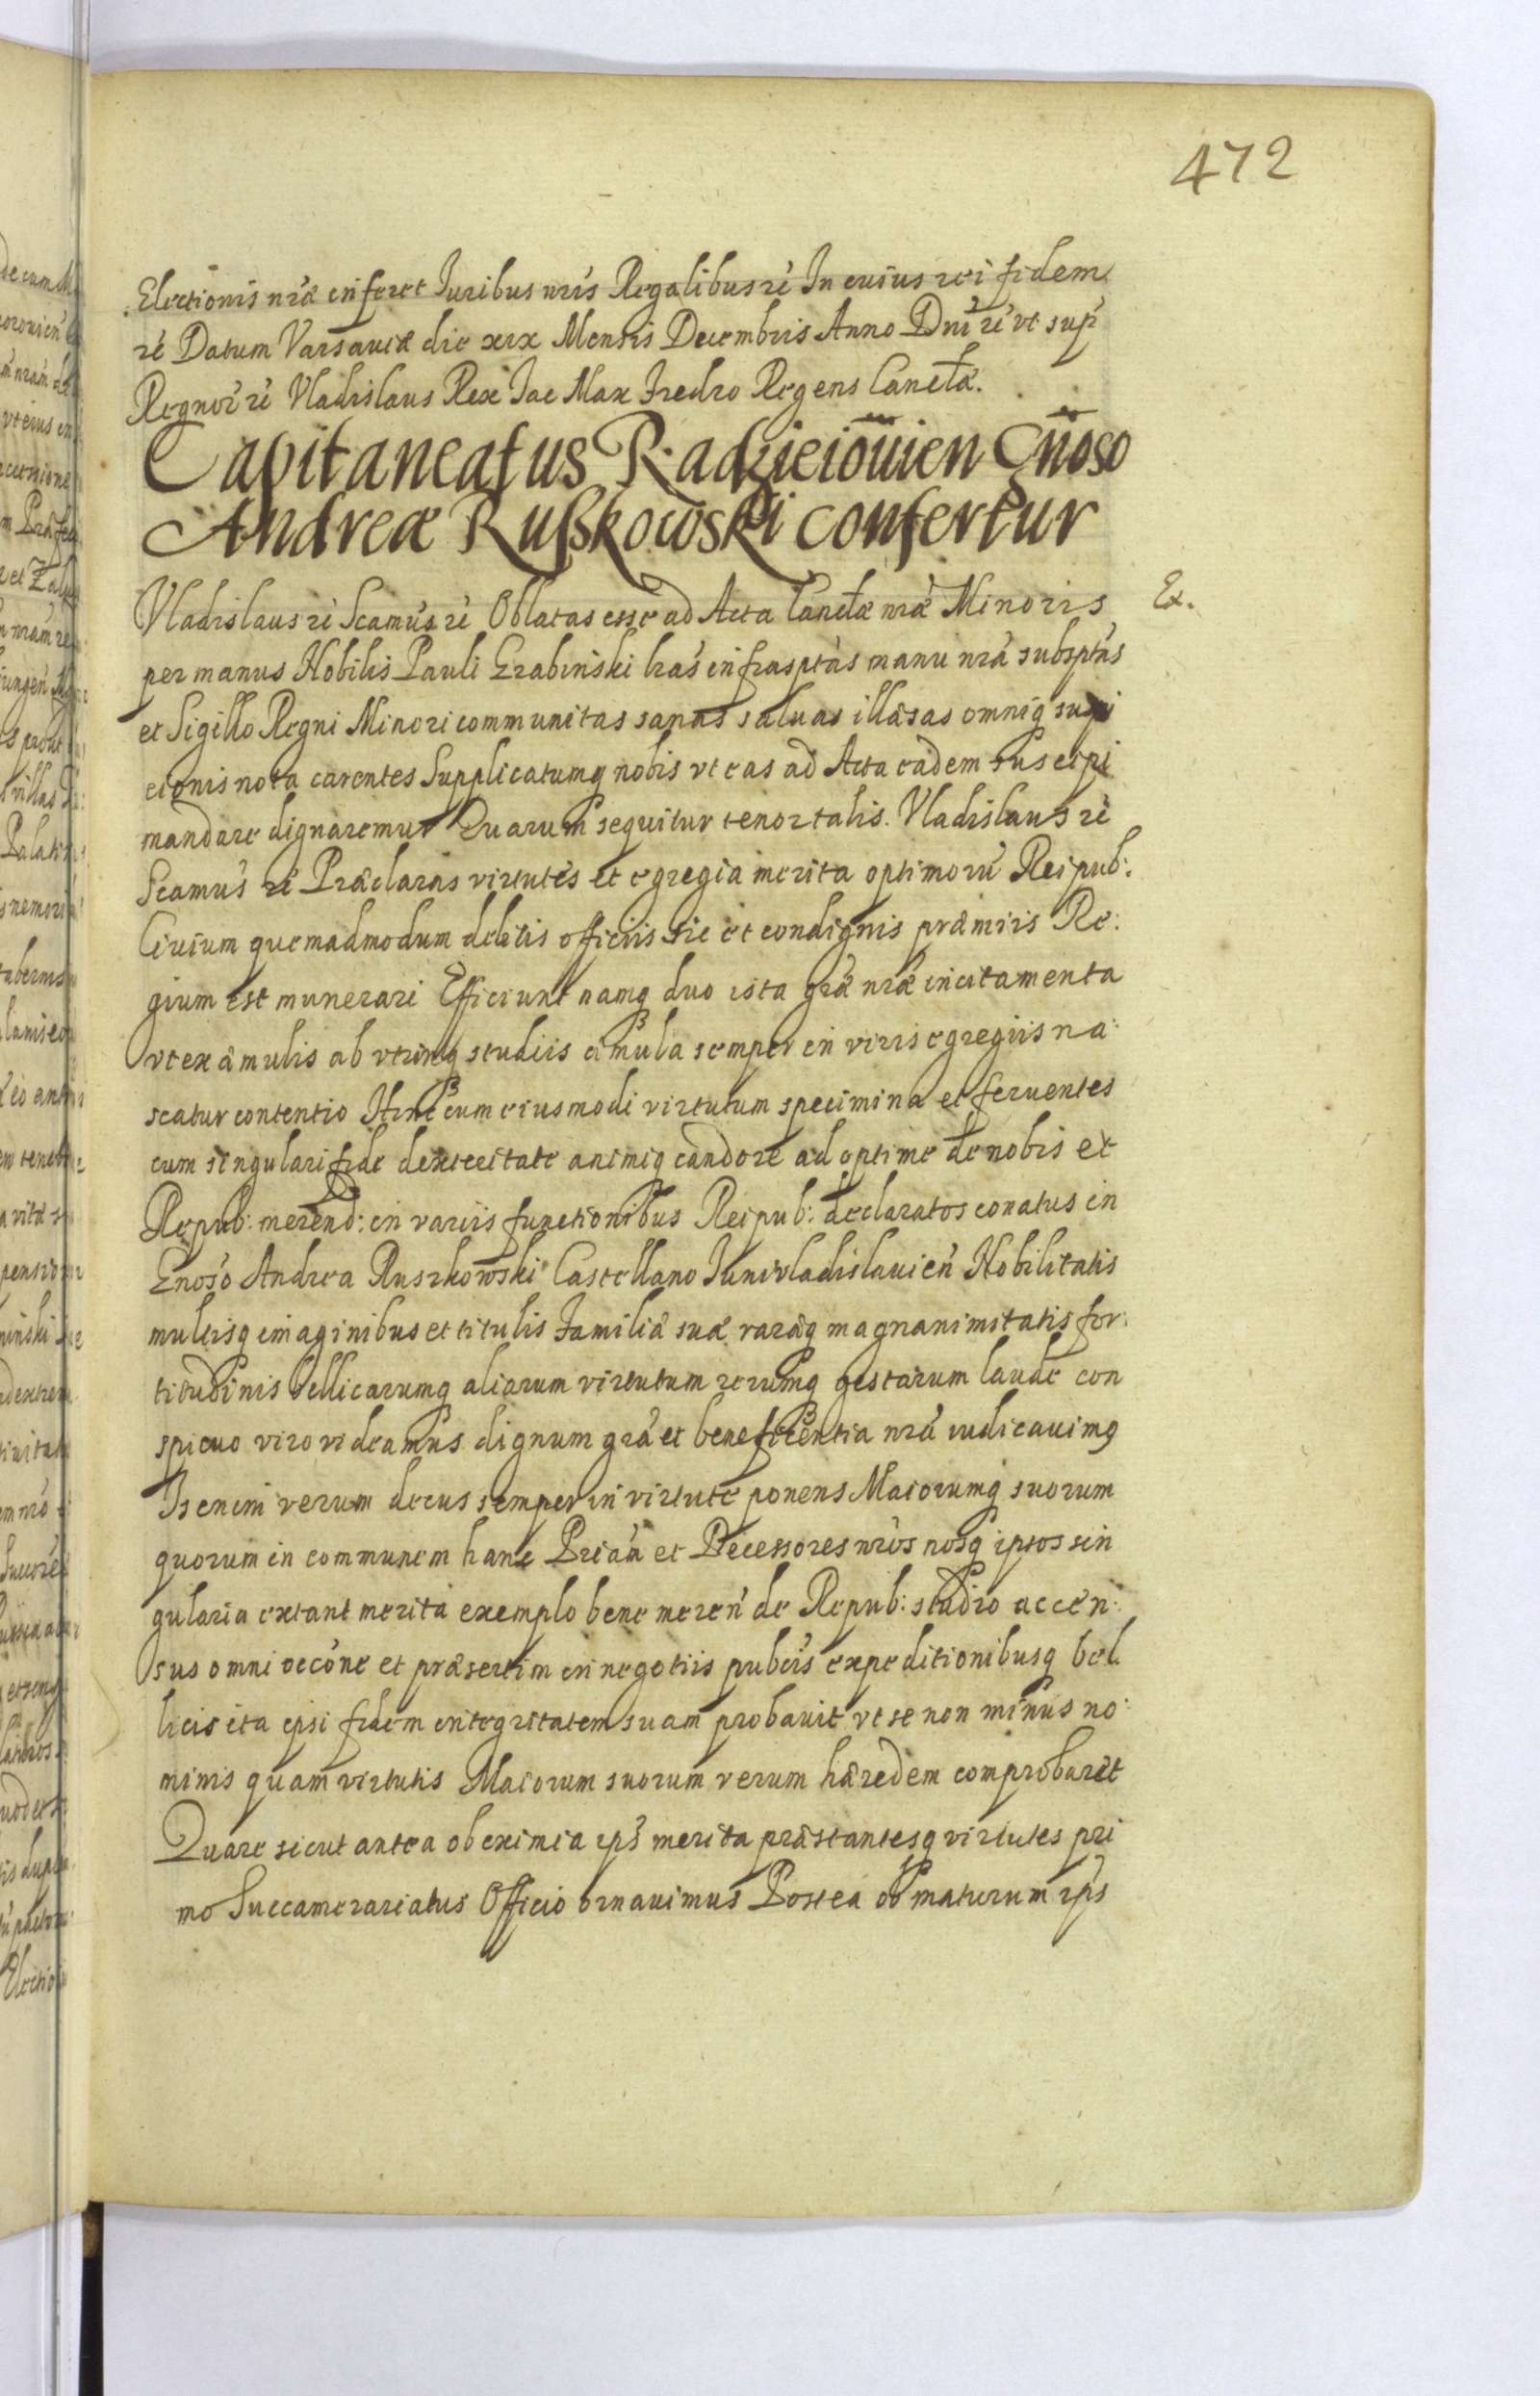 472
Electionis nr̃æ inferet Juribus nr̃is Regalibus rẽ In cuius rei fidem
rẽ Datum Varsauiæ die xix Mensis Decembris Anno Dni rẽ vt supr̃
Regnor̃ rẽ Vladislaus Rex Jac Max Fredro Regens Cancel̃æ.
Capitaneatus Radzieiouien Gñoso
Andreæ Rußkowski confertur
Ex.
Vladislaus rẽ Scamus rẽ Oblatas esse ad Acta Cancel̃æ nr̃æ Minoris
per manus Nobilis Pauli Grabinski lr̃as infrasptas manu nr̃a subsptas
et Sigillo Regni Minori communitas sanas saluas illæsas omniq suspi
cionis nota carentes Supplicatumq nobis vt eas ad Acta eadem suscipi
mandare dignaremur Quarum sequitur tenor talis. Vladislaus rẽ
Scamus rẽ Præclaras virtutes et egregia merita optimorũ Reipub:
Ciuium quemadmodum debitis officiis sic et condignis præmiis Re:
gium est munerari Efficiunt namq duo ista gr̃æ nr̃æ incitamenta
vt ex æmulis ab vtrinq studiis æmula semper in viris egregiis na:
scatur contentio Hinc cum eiusmodi virtutum specimina et feruentes
cum singulari fide dexteritate animiq candore ad optime de nobis et
Repub: merend: in variis functionibus Reipub: declaratos conatus in
Gnoso Andrea Ruszkowski Castellano Junivladislauien̉ Nobilitatis
multisq imaginibus et titulis Familiæ suæ raræq magnanimitatis for:
titudinis bellicarumq aliarum virtutum rerumq gestarum laude con
spicuo viro videamus dignum gr̃a et beneficentia nr̃a iudicauimq
Is enim verum decus semper in virtute ponens Maiorumq suorum
quorum in communem hanc Prỉam et Decessores nr̃os nosq ipsos sin
gularia extant merita exemplo bene meren̉ de Repub: studio accen:
sus omni occõne et præsertim in negotiis pubcis expeditionibusq bel
licis ita ipsi fidem integritatem suam probauit vt se non minus no:
minis quam virtutis Maiorum suorum verum hæredem comprobaret
Quare sicut antea ob eximia ips̉ merita præstantesq virtutes pri
mo Succamerariatus Officio ornauimus Postea ob maturum ips̉